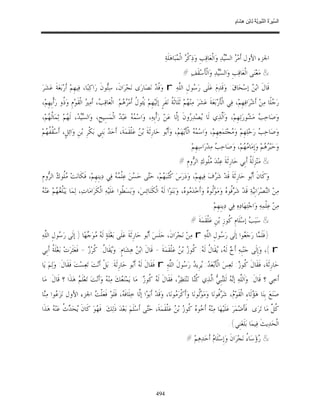 السّيرَة النّبويَّة لابن هشام
الجزء الأول أَمْرُ السَّيِّدِ وَالْعَاقِبِ وَذِكْرُ الْمُبَاهَلَةِ
& مَعْنَى الْعَاقِبِ وَالسَّيِّدِ وَالْأُسْقُفِ #
قَالَ ابْنُ إسْحَاقَ: وَقَدِمَ عَلَى رَسُولِ اللَّهِ r وَفْدُ نَصَارَى نَجْرَانَ، سِتُّونَ رَاكِبًا، فِيهِمْ أَرْبَعَةَ عَشَرَ
رَجُلًا مِنْ أَشْرَافِهِمْ، فِي الْأَرْبَعَةَ عَشَرَ مِنْهُمْ ثَلَاثَةُ نَفَرٍ إلَيْهِمْ يَئُولُ أَمْرُهُمْ: الْعَاقِبُ، أَمِيرُ الْقَوْمِ وَذُو رَأْيِهِمْ،
وَصَاحِبُ مَشُورَتِهِمْ، وَالَّذِي لَا يُصْدِرُونَ إلَّا عَنْ رَأْيِهِ، وَاسْمُهُ عَبْدُ الْمَسِيحِ، وَالسَّيِّدُ، لَهُمْ ثِمَالُهُمْ،
وَصَاحِبُ رَحْلِهِمْ وَمُجْتَمَعِهِمْ، وَاسْمُهُ الْأَيْهَمُ، وَأَبُو حَارِثَةَ بْنُ عَلْقَمَةَ، أَحَدُ بَنِي بَكْرِ بْنِ وَائِلٍ، أُسْقُفُّهُمْ
وَحَبْرُهُمْ وَإِمَامُهُمْ، وَصَاحِبُ مِدْرَاسِهِمْ
& مَنْزِلَةُ أَبِي حَارِثَةَ عِنْدَ مُلُوكِ الرُّومِ #
وَكَانَ أَبُو حَارِثَةَ قَدْ شَرُفَ فِيهِمْ، وَدَرَسَ كُتُبَهُمْ، حَتَّى حَسُنَ عِلْمُهُ فِي دِينِهِمْ، فَكَانَتْ مُلُوكُ الرُّومِ
مِنْ النَّصْرَانِيَّةِ قَدْ شَرَّفُوهُ وَمَوَّلُوهُ وَأَخْدَمُوهُ، وَبَنَوْا لَهُ الْكَنَائِسَ، وَبَسَطُوا عَلَيْهِ الْكَرَامَاتِ، لِمَا يَبْلُغُهُمْ عَنْهُ
مِنْ عِلْمِهِ وَاجْتِهَادِهِ فِي دِينِهِمْ
& سَبَبُ إسْلَامِ كُوزِ بْنِ عَلْقَمَةَ #
(فَلَمَّا رَجَعُوا إلَى رَسُولِ اللَّهِ r مِنْ نَجْرَانَ، جَلَسَ أَبُو حَارِثَةَ عَلَى بَغْلَةٍ لَهُ مُوَجِّهًا ( إلَى رَسُولِ اللَّهِ
r )، وَإِلَى جَنْبِهِ أَخٌ لَهُ، يُقَالُ لَهُ: كُوزُ بْنُ عَلْقَمَةَ - قَالَ ابْنُ هِشَامٍ: وَيُقَالُ: كُرْزُ - فَعَثَرَتْ بَغْلَةُ أَبِي
حَارِثَةَ، فَقَالَ كُوزُ: تَعِسَ الْأَبْعَدُ: يُرِيدُ رَسُولَ اللَّهِ r فَقَالَ لَهُ أَبُو حَارِثَةَ: بَلْ أَنْتَ تَعِسْتَ فَقَالَ: وَلِمَ يَا
أَخِي ؟ قَالَ: وَاللَّهِ إنَّهُ لَلنَّبِيُّ الَّذِي كُنَّا نَنْتَظِرُ، فَقَالَ لَهُ كُوزُ: مَا يَمْنَعُكَ مِنْهُ وَأَنْتَ تَعْلَمُ هَذَا ؟ قَالَ: مَا
صَنَعَ بِنَا هَؤُلَاءِ الْقَوْمُ، شَرَّفُونَا وَمَوَّلُونَا وَأَكْرَمُونَا، وَقَدْ أَبَوْا إلَّا خِلَافَهُ، فَلَوْ فَعَلْتُ الجزء الأول نَزَعُوا مِنَّا
كُلَّ مَا تَرَى. فَأَضْمَرَ عَلَيْهَا مِنْهُ أَخُوهُ كُوزُ بْنُ عَلْقَمَةَ، حَتَّى أَسْلَمَ بَعْدَ ذَلِكَ. فَهُوَ كَانَ يُحَدِّثُ عَنْهُ هَذَا
الْحَدِيثَ فِيمَا بَلَغَنِي (
& رُؤَسَاءُ نَجْرَانَ وَإِسْلَامُ أَحَدِهِمْ #
494